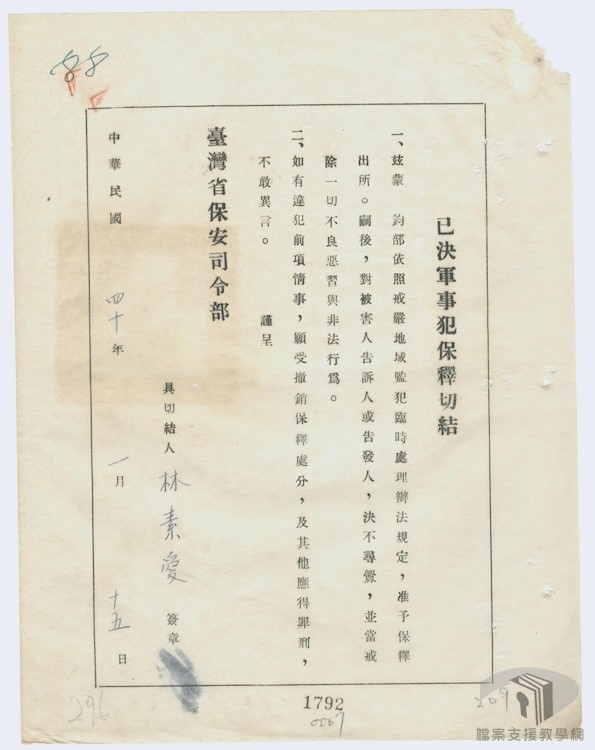 88
已決軍事犯保釋切結
一、玆�　鈞部依照戒嚴地域監犯臨時處理辦法規定，准予保釋
出所。嗣後，對被害人告訴人或告發人，決不尋釁，並當戒
除一切不良惡習與非法行爲。
二、如有違犯前項情事，願受撤銷保釋處分，及其他應得罪刑，
不敢異言。　　謹呈
臺灣省保安司令部
具切結人　林素愛　簽章
中華民國　四十年　一月　十五日
296
1792
0007
209
檔案支援教學網